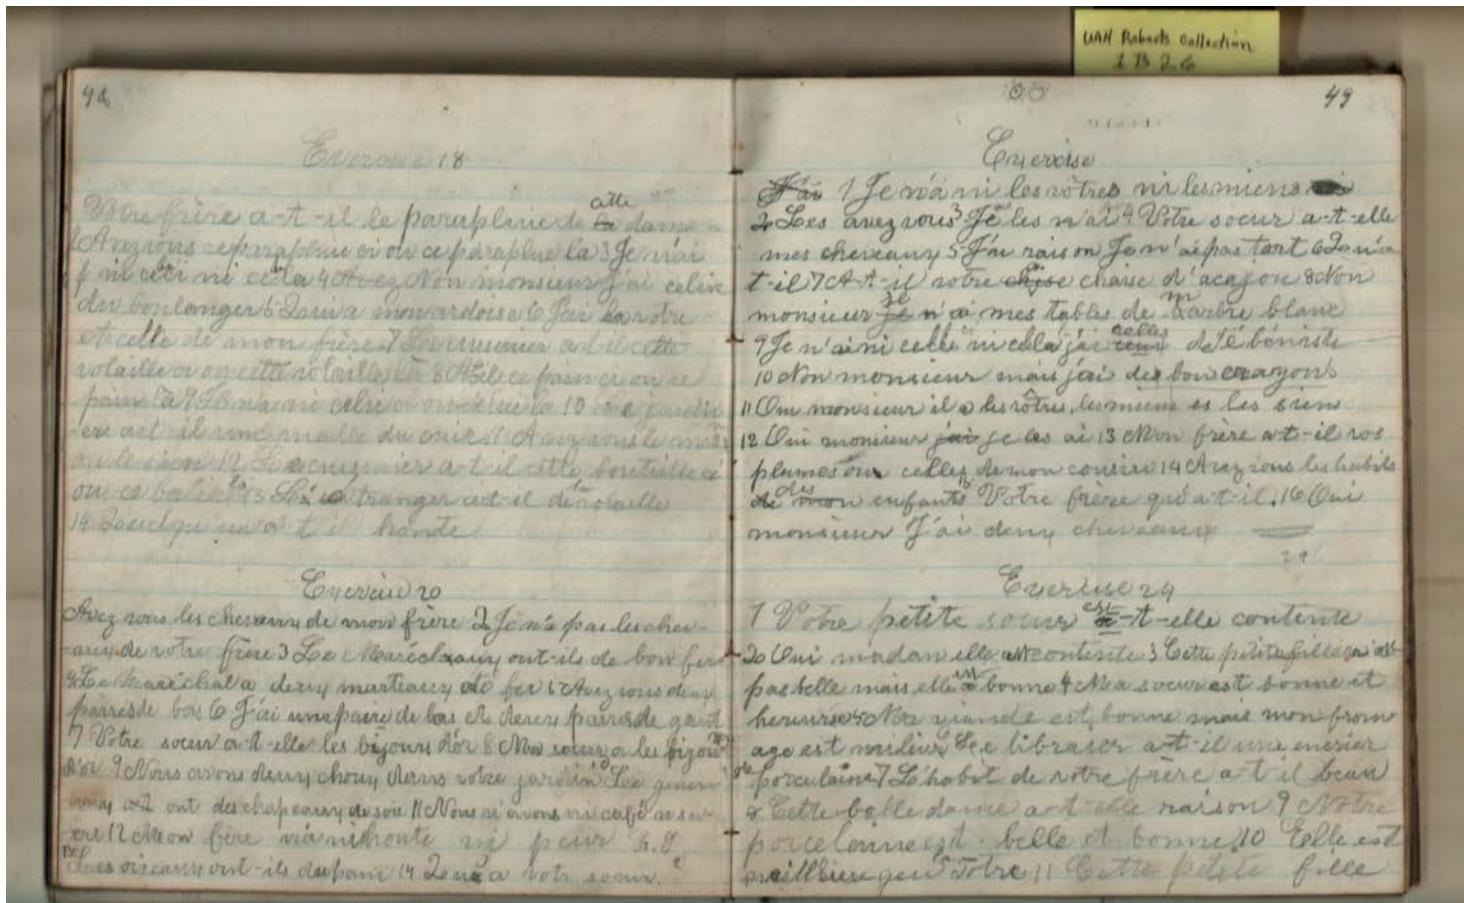 UAH Roberts Collection
1 B 26
48
Exercise 18
Votre frère a-t-il le parapluie de la dame
Avez vous ce parapluie ci ou ce parapluie la 3 Je n'ai
ni celui ni cela 4 Avez Non monsieur j'ai celui
du boulanger 5 Qui a mon ardoise 6 J'ai la votre
et celle de mon frère 7 Le cuisinier a-t-il cette
volaille ci ou cette volaille la 8 A-t-il ce pain ci ou ce
pain la 9 Il n'a ni celui ci ou celui la 10 Le jardin
er a-t-il une malle du cuir 11 Avez vous le mien
ou le sien 12 Le cuisinier a-t-il cette bouteille ci
ou ce la 13 L'étranger a-t-il de volaille
14 Quelqu un a t il honte
Exercise 20
Avez vous les chevaux de mon frère 2 Je n'a pas les chev-
-aux de votre frère 3 Le Maréchaux ont-ils de bon fer
4 Le Maréchal a deux marteaux de fer 5 Avez vous deux
paires de bas 6 J'ai une paire de bas et deux paires de gant
7 Votre soeur a-t-elle les bijoux d'or 8 Ma soeur a les bijoux
d'or 9 Nous avons deux choux dans votre jardin 10 Le gener
ont des chapeaux de soie 11 Nous n'avons ni café ni su-
-cre 12 Mon frère n'a ni honte ni peur
Les oiseaux ont-ils du pain 14 Qui a votr soeur. ?
49
Exercise
J'ai 1 Je n'a ni les vôtres ni les miens
2 Les avez vous 3 Je les n'ai 4 Votre soeur a-t-elle
mes cheveaux 5 J'ai raison Je n'ai pas tort 6 Qu n'a
t-il 7 A-t-il votre chise chaise d'acajou 8 Non
monsieur je n'ai mes tables de marbre blanc
9 Je n'ai ni celle ni cela j'ai ceux celles de l'ébéniste
10 Non monsieur mais j'ai des bon crayons
11 Oui monsieur il a les vôtres, les miens es les sien
12 Oui monsieur j'ai je les ai 13 Mon frère a-t-il vos
plumes ou celles de mon cousin 14 Avez vous les habits
de mon des enfants 15 Votre frère qu'a-t-il. 16 Oui
monsieur J'ai deux cheveaux
29
Exercise 24
1 Votre petite soeur est-t-elle contente
2 Oui madam elle est contente 3 Cette petite fille n'est
pas belle mais elle est bonne 4 Ma soeur est bonne et
heureuse 5 Ma viande est bonne mais mon from
age est meilieur 6 Le libraier a-t-il une encrier
de porcelaine 7 L'habit de votre frère a-t-il beau
8 Cette belle dame a-t-elle raison 9 Notre
porcelaine est belle et bonne 10 Elle est
meilliure que votre 11 Cette petite fille